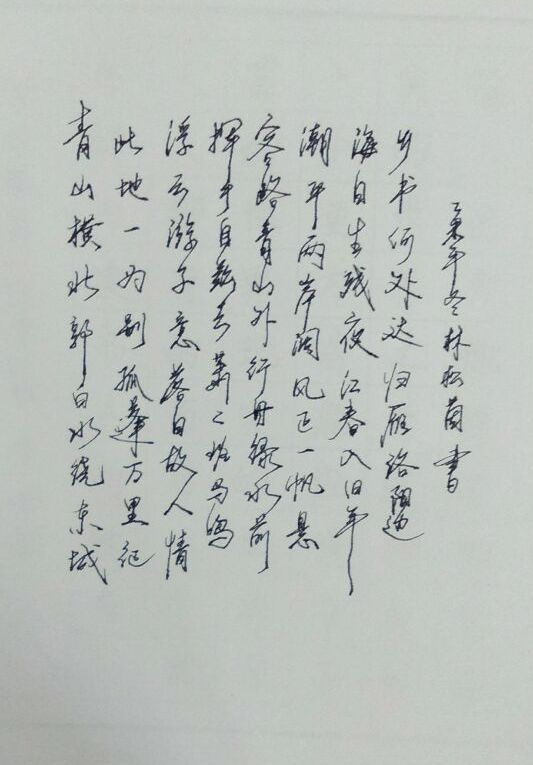 青山横北郭白水绕东城
此地一为别孤蓬万里征
浮云游子意落日故人情
挥手自兹去萧〻班马鸣
客路青山外行舟绿水前
潮平两岸阔风正一帆悬
海日生残夜江春入旧年
乡书何处达归雁洛阳边
年冬林松書